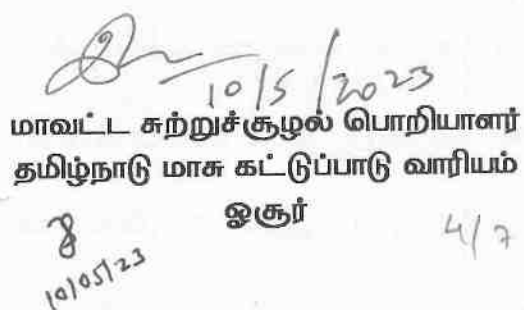 10/5/2023
மாவட்ட சுற்றுச்சூழல் பொறியாளர்
தமிழ்நாடு மாசு கட்டுப்பாடு வாரியம்
ஓசூர்
10/05/23
4/7